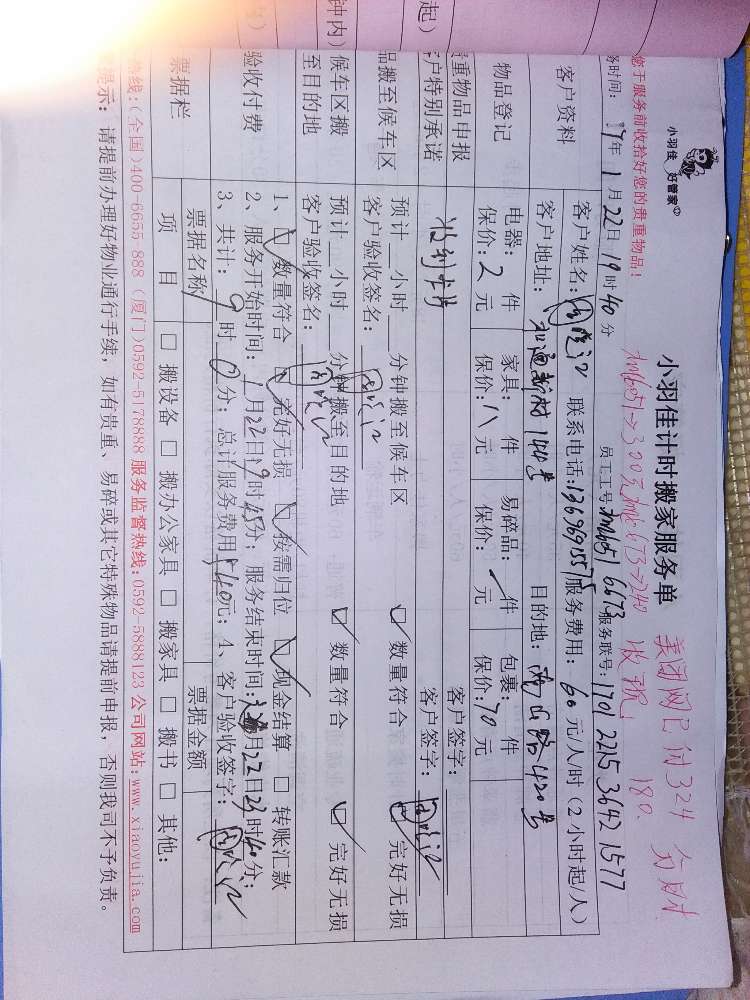 起)
钟内)
您于服务前收拾好您的贵重物品!
小羽佳 好管家
小羽佳计时搬家服务单
务时间: 17年 1月22日 19时40分 员工工号 6673 服务联号: 1701 2215 3642 1577
美团网已付324
收现 180
客户资料
客户姓名: 联系电话:13696915575 服务费用: 60元/人/时 (2小时起/人)
客户地址: 新村144号 目的地: 路420号
物品登记
电器: 件 家具: 件 易碎品: 件 包裹: 件
保价: 2元 保价: 八元 保价: 元 保价: 70元
重物品申报
客户签字:
户特别承诺 客户签字:
品搬至候车区
预计 小时 分钟搬至候车区 ☑ 数量符合 ☑ 完好无损
客户验收签名:
候车区搬至目的地
预计 小时 分钟搬至目的地 ☑ 数量符合 ☑ 完好无损
客户验收签名:
验收付费
1、☑ 数量符合 ☑ 完好无损 ☑ 按需归位 ☑ 现金结算 □ 转账汇款
2、服务开始时间: 1月22日19时45分; 服务结束时间: 月22日23时40分;
3、共计: 9时0分; 总计服务费用 元; 4、客户验收签字:
票据栏
票据名称 票据金额
项 目 □ 搬设备 □ 搬办公家具 □ 搬家具 □ 搬书 □ 其他:
热线:(全国)400-6655 888 (厦门)0592-5178888 服务监督热线:0592-5888123 公司网站:www.xiaoyujia.com
提示: 请提前办理好物业通行手续, 如有贵重、易碎或其它特殊物品请提前申报, 否则我司不予负责。